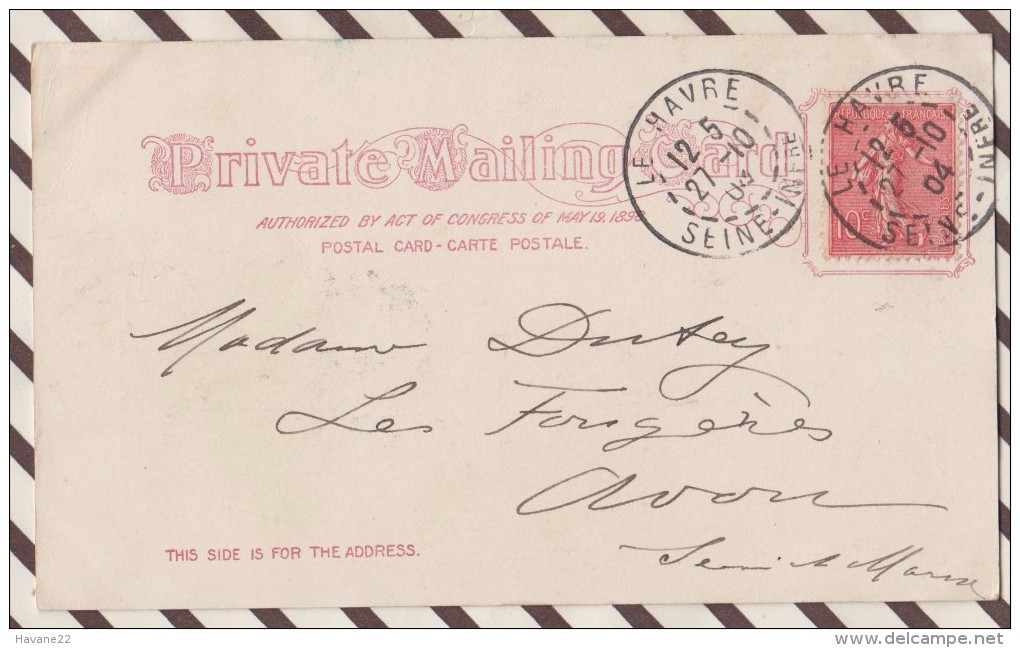 Private Mailing Card
AUTHORIZED BY ACT OF CONGRESS OF MAY 19, 1898
POSTAL CARD - CARTE POSTALE.
LE HAVRE
12 5
27 -10
04
SEINE-INFRE
REPUBLIQUE FRANÇAISE
10c
LE HAVRE
12 5
27 -10
04
SEINE-INFRE
Madame Dutey
Les Fougères
Avon
Seine et Marne
THIS SIDE IS FOR THE ADDRESS.
Havane22
www.delcampe.net